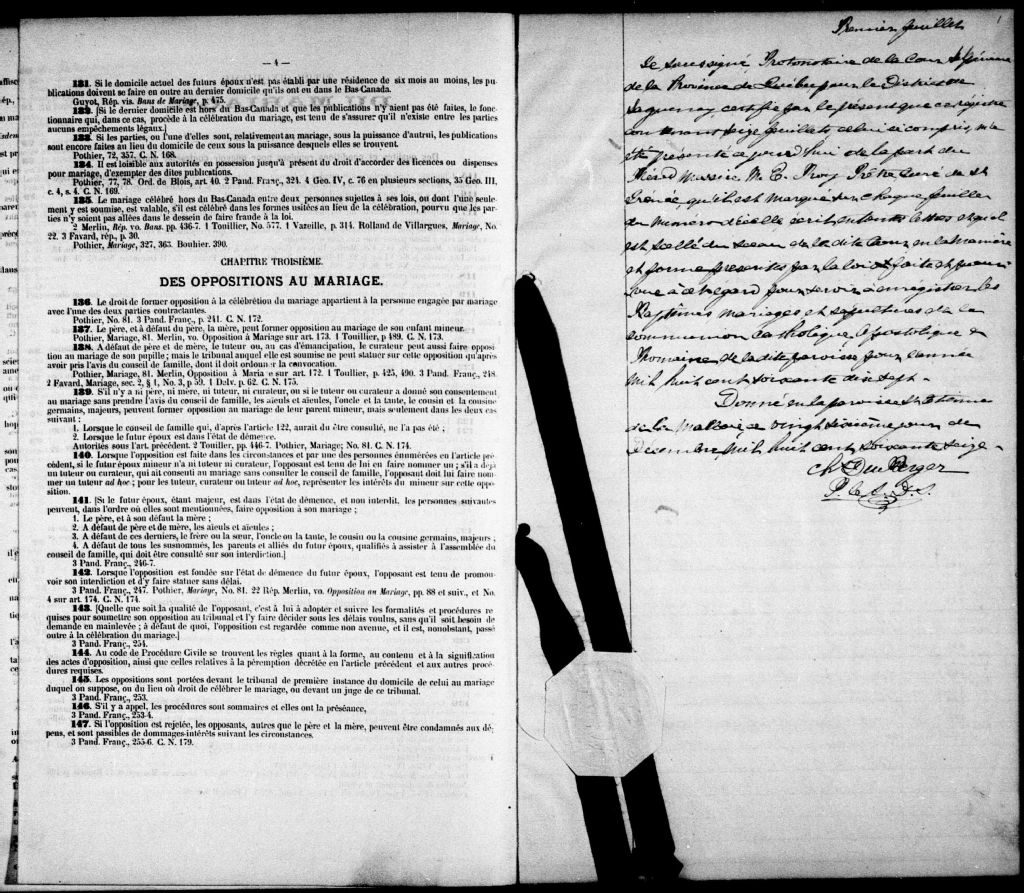 — 4 —
131. Si le domicile actuel des futurs époux n'est pas établi par une résidence de six mois au moins, les pu-
blications doivent se faire en outre au dernier domicile qu'ils ont eu dans le Bas-Canada.
Guyot, Rép. vis. Bans de Mariage, p. 475.
132. [Si le dernier domicile est hors du Bas-Canada et que les publications n'y aient pas été faites, le fonc-
tionnaire qui, dans ce cas, procède à la célébration du mariage, est tenu de s'assurer qu'il n'existe entre les parties
aucuns empêchements légaux.]
133. Si les parties, ou l'une d'elles sont, relativement au mariage, sous la puissance d'autrui, les publications
sont encore faites au lieu du domicile de ceux sous la puissance desquels elles se trouvent.
Pothier, 72, 357. C. N. 168.
134. Il est loisible aux autorités en possession jusqu'à présent du droit d'accorder des licences ou dispenses
pour mariage, d'exempter des dites publications.
Pothier, 77, 78. Ord. de Blois, art. 40. 2 Pand. Franç., 324. 4 Geo. IV, c. 76 en plusieurs sections, 35 Geo. III,
c. 4, s. 4. C. N. 169.
135. Le mariage célébré hors du Bas-Canada entre deux personnes sujettes à ses lois, ou dont l'une seule-
ment y est soumise, est valable, s'il est célébré dans les formes usitées au lieu de la célébration, pourvu que les par-
ties n'y soient pas allées dans le dessein de faire fraude à la loi.
2 Merlin, Rép. vo. Bans. pp. 436-7. 1 Tonillier, No. 577. 1 Vazeille, p. 314. Rolland de Villargues, Mariage, No.
22. 3 Favard, rép., p. 30.
Pothier, Mariage, 327, 363. Bouhier. 390.
CHAPITRE TROISIÉME.
DES OPPOSITIONS AU MARIAGE.
136. Le droit de former opposition à la célébrétion du mariage appartient à la personne engagée par mariage
avec l'une des deux parties contractantes.
Pothier, No. 81. 3 Pand. Franç., p. 241. C. N. 172.
137. Le père, et à défaut du père, la mère, peut former opposition au mariage de son enfant mineur.
Pothier, Mariage, 81. Merlin, vo. Opposition à Mariage sur art. 173. 1 Touillier, p 489. C. N. 173.
138. A défaut de père et de mère, le tuteur ou, au cas d'émancipation, le curateur peut aussi faire opposi-
tion au mariage de son pupille; mais le tribunal auquel elle est soumise ne peut statuer sur cette opposition qu'après
avoir pris l'avis du conseil de famille, dont il doit ordonner la convocation.
Pothier, Mariage, 81. Merlin, Opposition à Maria e sur art. 172. 1 Toullier, p. 425, 490. 3 Pand. Franç., 248.
2 Favard, Mariage, sec. 2, § 1, No. 3, p 59. 1 Delv. p. 62. C. N. 175.
139. S'il n'y a ni père, ni mère, ni tuteur, ni curateur, ou si le tuteur ou curateur a donné son consentement
au mariage sans prendre l'avis du conseil de famille, les aïeuls et aïeules, l'oncle et la tante, le cousin et la cousine
germains, majeurs, peuvent former opposition au mariage de leur parent mineur, mais seulement dans les deux cas
suivant :
1. Lorsque le conseil de famille qui, d'après l'article 122, aurait du être consulté, ne l'a pas été ;
2. Lorsque le futur époux est dans l'état de démence.
Autorités sous l'art. précédent. 2 Touiller, pp. 446-7. Pothier, Mariage; No. 81. C. N. 174.
140. Lorsque l'opposition est faite dans les circonstances et par une des personnes énumérées en l'article pré-
cédent, si le futur époux mineur n'a ni tuteur ni curateur, l'opposant est tenu de lui en faire nommer un ; s'il a déjà
un tuteur ou curateur, qui ait consenti au mariage sans consulter le conseil de famille, l'opposant doit lui faire nom-
mer un tuteur ad hoc ; pour les tuteur, curateur ou tuteur ad hoc, représenter les intérêts du mineur sur cette oppo-
sition.
141. [Si le futur époux, étant majeur, est dans l'état de démence, et non interdit, les personnes suivantes
peuvent, dans l'ordre où elles sont mentionnées, faire opposition à son mariage ;
1. Le père, et à son défaut la mère ;
2. A défaut de père et de mère, les aïeuls et aïeules ;
3. A défaut de ces derniers, le frère ou la sœur, l'oncle ou la tante, le cousin ou la cousine germains, majeurs ;
4. A défaut de tous les susnommés, les parents et alliés du futur époux, qualifiés à assister à l'assemblée du
conseil de famille, qui doit être consulté sur son interdiction.]
3 Pand. Franç., 246-7.
142. Lorsque l'opposition est fondée sur l'état de démence du futur époux, l'opposant est tenu de promou-
voir son interdiction et d'y faire statuer sans délai.
3 Pand. Franç., 247. Pothier, Mariage, No. 81. 22 Rép. Merlin, vo. Opposition au Mariage, pp. 88 et suiv., et No.
4 sur art. 174. C. N. 174.
143. [Quelle que soit la qualité de l'opposant, c'est à lui à adopter et suivre les formalités et procédures re-
quises pour soumettre son opposition au tribunal et l'y faire décider sous les délais voulus, sans qu'il soit besoin de
demande en mainlevée ; à défaut de quoi, l'opposition est regardée comme non avenue, et il est, nonobstant, passé
outre à la célébration du mariage.]
3 Pand. Franç., 254.
144. Au code de Procédure Civile se trouvent les règles quant à la forme, au contenu et à la signification
des actes d'opposition, ainsi que celles relatives à la péremption décrétée en l'article précédent et aux autres procé-
dures requises.
145. Les oppositions sont portées devant le tribunal de première instance du domicile de celui au mariage
duquel on suppose, ou du lieu où droit de célébrer le mariage, ou devant un juge de ce tribunal.
3 Pand. Franç., 253.
146. S'il y a appel, les procédures sont sommaires et elles ont la préséance,
3 Pand. Franç., 253-4.
147. Si l'opposition est rejetée, les opposants, autres que le père et la mère, peuvent être condamnés aux dé-
pens, et sont passibles de dommages-intérêts suivant les circonstances.
3 Pand. Franç., 255-6. C. N. 179.
Premier feuillet
1
Je soussigné Protonotaire de la Cour Supérieure
de la Province de Québec pour le District de
Saguenay, certifie par le présent que ce registre
contenant seize feuillets celui ci compris, m'a
été présenté aujourd'hui de la part du
Révd Messire M. E. Roy Prêtre Curé de St
Irénée qu'il est marqué sur chaque feuillet
du numéro d'icelle écrit en toutes lettres et qu'il
est scellé du sceau de la dite Cour en la manière
et forme prescrites par la loi
pour servir à enregistrer les
Baptêmes mariages et sépultures de la
communion Catholique Apostolique &
Romaine de la dite paroisse pour l'année
mil huit cent soixante dix sept.
Donné en la paroisse St Etienne
de la Malbaie ce vingt sixième jour de
Décembre mil huit cent soixante seize
Chs DuBerger
P. C. S. D. S.